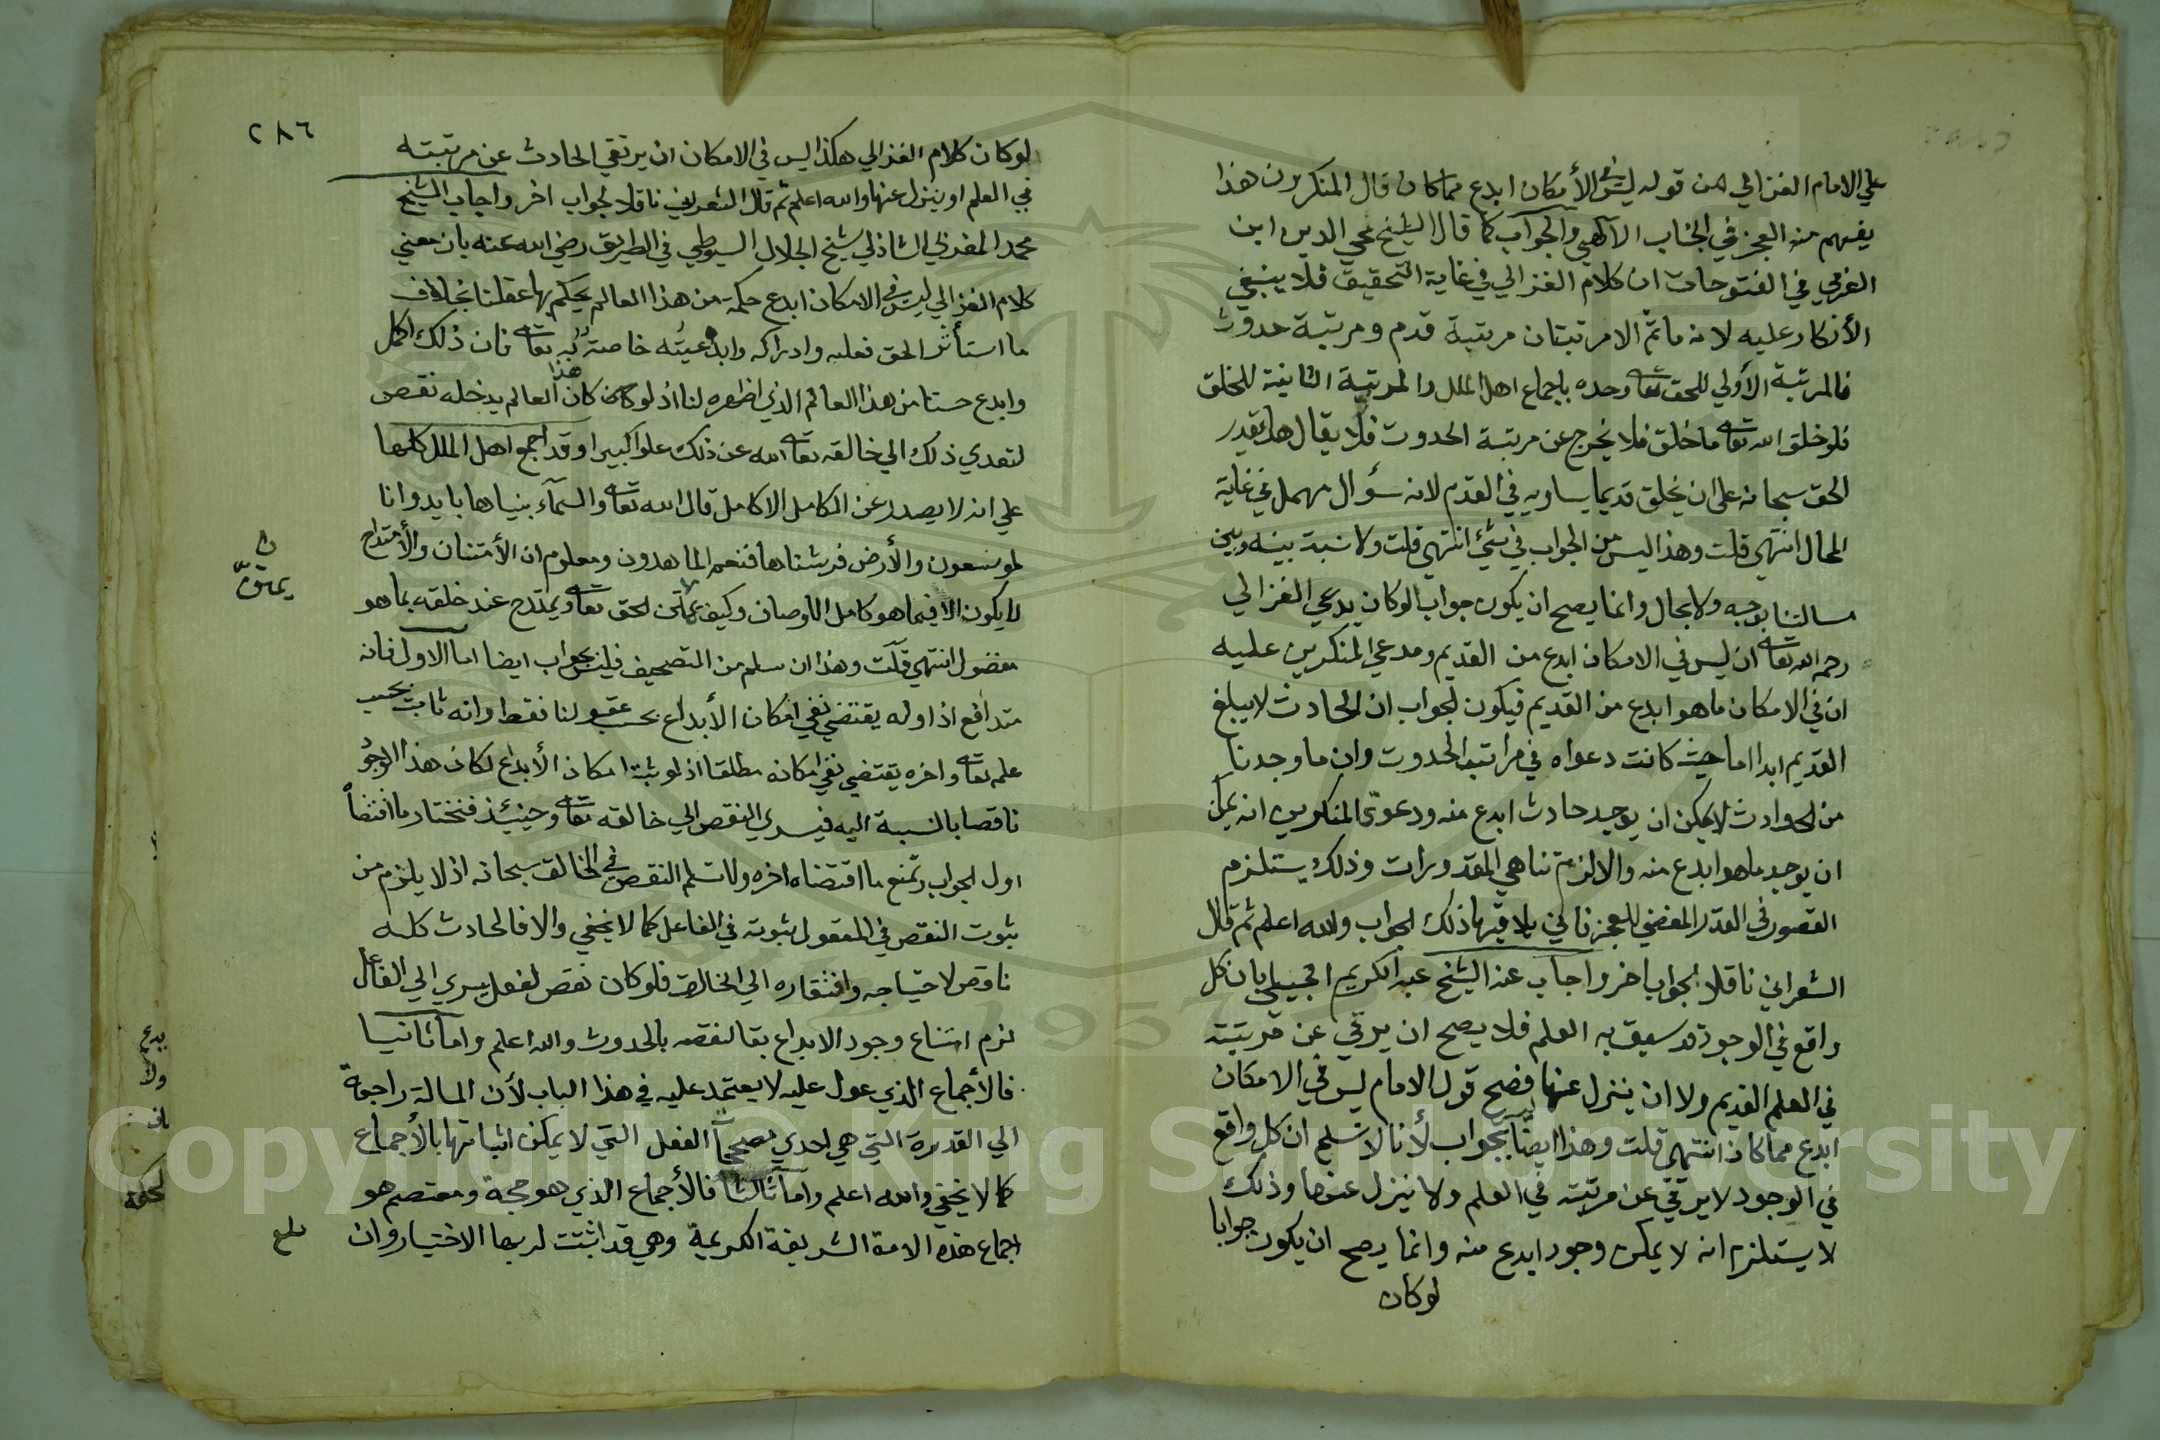 علي الامام الغزالي من قوله ليس في الأمكان ابدع مما كان قال المنكرون هذا
يفهم منه العجز في الجناب الالهي والجواب كما قال الشيخ محي الدين ابن
العربي في الفتوحات ان كلام الغزالي في غاية التحقيق فلا ينبغي
الأنكار عليه لانه ما ثم الا مرتبتان مرتبة قدم ومرتبة حدوث
فالمرتبة الأولي للحق تعا وحده باجماع اهل الملل والمرتبة الثانية للخلق
فلو خلق الله تعا ما خلق فلا يخرج عن مرتبة الحدوث فلا يقال هل يقدر
الحق سبحانه علي ان يخلق قديما يساويه في القدم لانه سؤال مهمل في غاية
المحال انتهي قلت وهذا ليس من الجواب في شئ انتهي قلت ولا نسبة بينه وبين
مسالتنا بوجه ولا بحال وانما يصح ان يكون جوابا لو كان يدعي الغزالي
رحمه الله تعا ان ليس في الامكان ابدع من القديم ومدعي المنكرين عليه
ان في الامكان ما هو ابدع من القديم فيكون الجواب ان الحادث لا يبلغ
القديم ابدا اما حيث كانت دعواه في مراتب الحدوث وان ما وجدنا
من الحوادث لا يمكن ان يوجد حادث ابدع منه ودعوي المنكرين انه يمكن
ان يوجد ما هو ابدع منه والا لزم تناهي المقدورات وذلك يستلزم
القصور في القدر المفضي للعجز فاني يلاقيها ذلك الجواب والله اعلم ثم قال
الشعراني ناقلا لجواب اخر واجاب عنه الشيخ عبد الكريم الجيلي بان كل
واقع في الوجود قد سبق به العلم فلا يصح ان يرقي عن مرتبته
في العلم القديم ولا ان ينزل عنها فصح قول الامام ليس في الامكان
ابدع مما كان انتهي قلت وهذا ايضا ليس بجواب لأنا لا نسلم ان كل واقع
في الوجود لا يرتقي عن مرتبته في العلم ولا ينزل عنها وذلك
لا يستلزم انه لا يمكن وجود ابدع منه وانما يصح ان يكون جوابا
لو كان
٢٨٦
لو كان كلام الغزالي هكذا ليس في الامكان ان يرتقي الحادث عن مرتبته
في العلم او ينزل عنها والله اعلم ثم قال الشعراني ناقلا لجواب اخر واجاب الشيخ
محمد المغربي الشاذلي شيخ الجلال السيوطي في الطريق رضي الله عنه بان معني
كلام الغزالي ليس في الامكان ابدع حكمة من هذا العالم يحكم بها عقلنا بخلاف
ما استأثر الحق بعلمه وادراكه وابدعيته خاصة به تعا فان ذلك اكمل
وابدع حسنا من هذا العالم الذي اظهره لنا اذ لو كان هذا العالم يدخله نقص
لتعدي ذلك الي خالقه تعا الله عن ذلك علوا كبيرا وقد اجمع اهل الملل كلها
علي انه لا يصدر عن الكامل الا كامل قال الله تعا والسماء بنيناها بايد وانا
لموسعون والأرض فرشناها فنعم الماهدون ومعلوم ان الأمتنان والأمتداح
لا يكون الا فيما هو كامل الاوصاف وكيف يمتن الحق تعا ويمتدح عند خلقه بما هو
مفضول انتهي قلت وهذا ان سلم من التصحيف فليس بجواب ايضا اما الاول فانه
متدافع اذ اوله يقتضي نفي امكان الأبداع بحسب عقولنا فقط وانه ثابت بحسب
علمه تعا واخره يقتضي نفي امكانه مطلقا اذ لو ثبت امكان الأبداع لكان هذا الوجود
ناقصا بالنسبة اليه فيسري النقص الي خالقه تعا وحينئذ فنختار ما اقتضاه
اول الجواب ونمنع ما اقتضاه اخره ولا نسلم النقص في الخالق سبحانه اذ لا يلزم من
ثبوت النقص في المفعول ثبوته في الفاعل كما لا يخفي والا فالحادث كله
ناقص لاحتياجه وافتقاره الي الخالق فلو كان نقص الفعل يسري الي الفاعل
لزم امتناع وجود الابداع بقا لنقصه بالحدوث والله اعلم واما ثانيا
فالأجماع الذي عول عليه لا يعتمد عليه في هذا الباب لأن المسالة راجعة
الي القدرة التي هي احدي مصححات الفعل التي لا يمكن اثباتها بالأجماع
كما لا يخفي والله اعلم واما ثالثا فالأجماع الذي هو حجة ومعتصم هو
اجماع هذه الامة الشريفة الكريمة وهي قد اثبتت لربها الاختيار وان
Copyright © King Saud University
1957